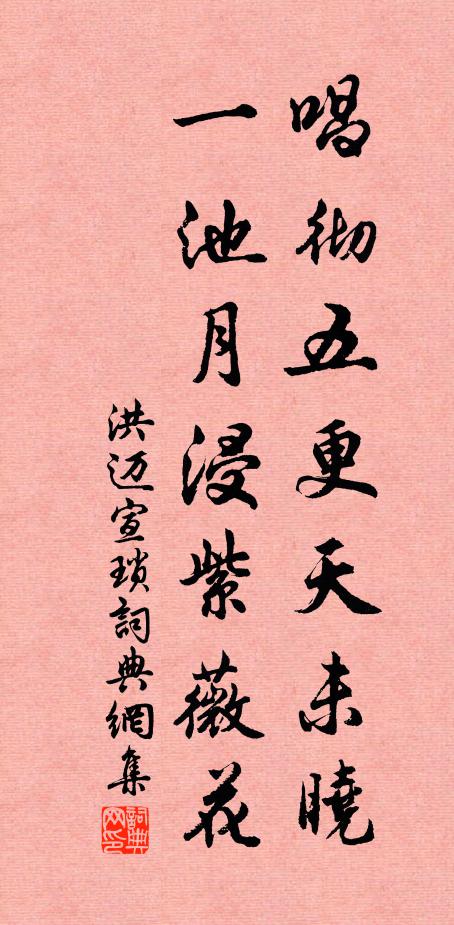 唱彻五更天未曉
一池月浸紫薇花
洪迈宣瑣詞典網集
詞典网印